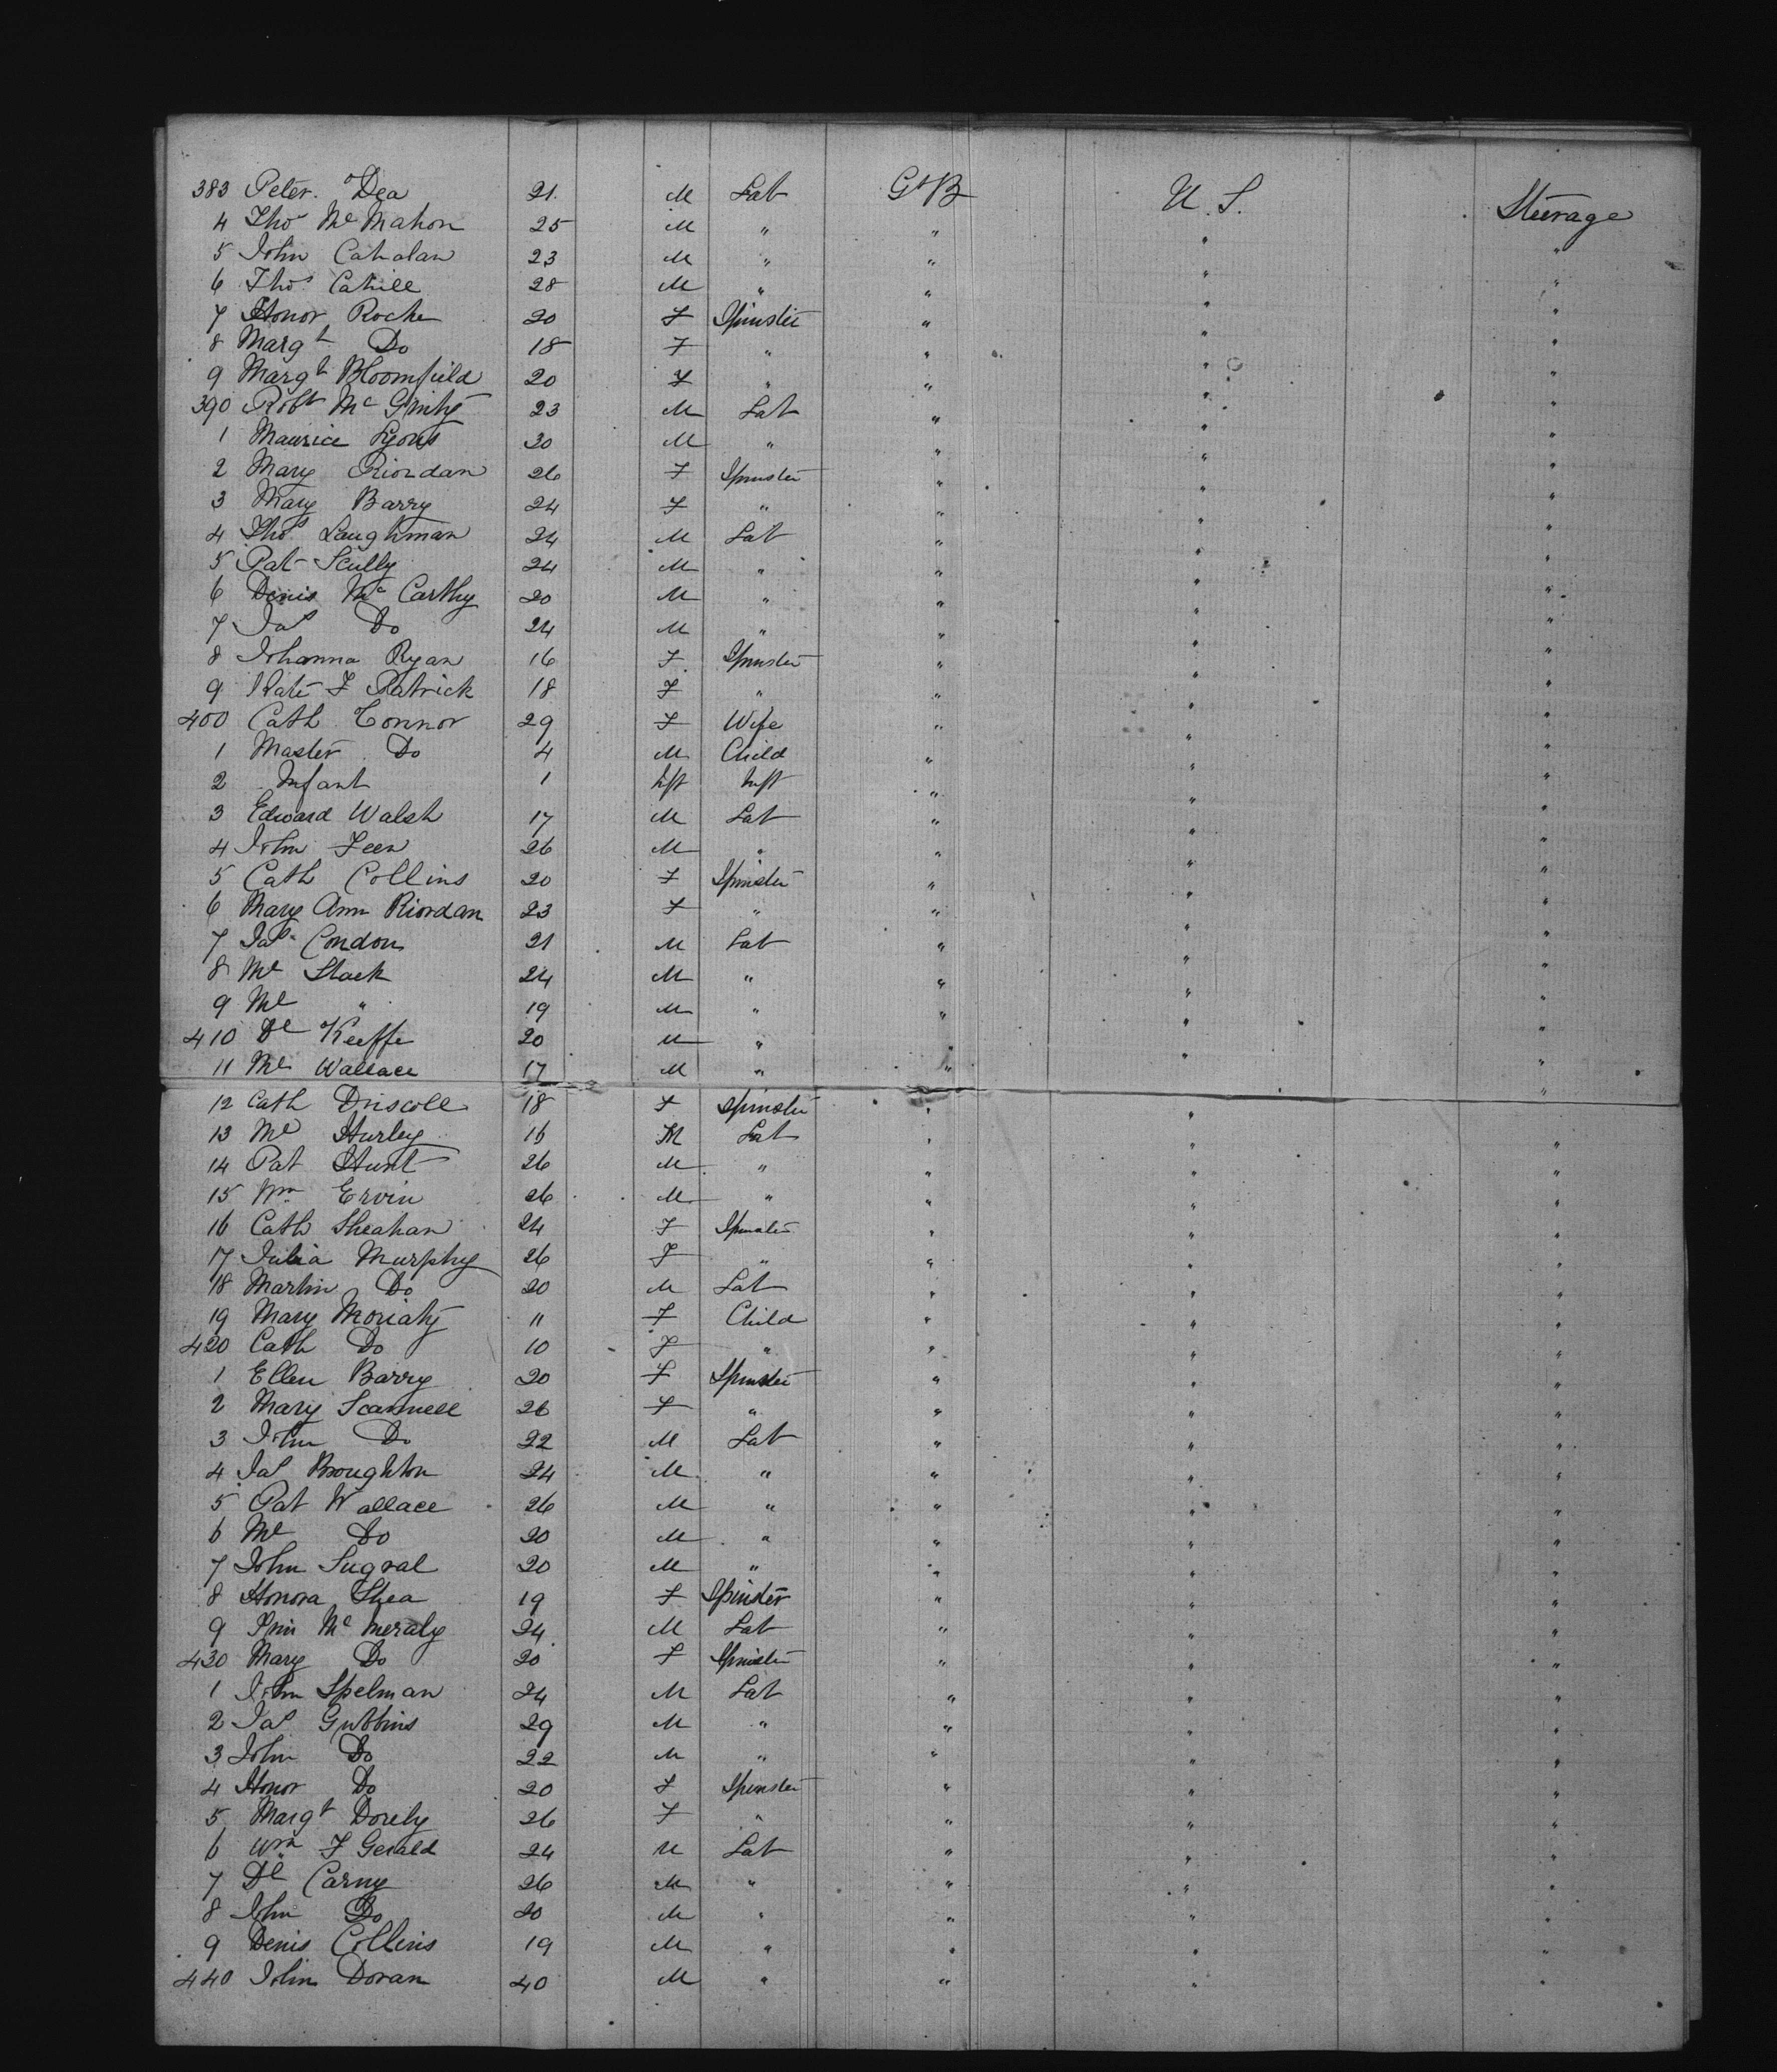 383 Peter O'Dea 21 M Lab Gt B U.S. Steerage
4 Thos McMahon 25 M " " " "
5 John Cahalan 23 M " " " "
6 Thos Cahill 28 M " " " "
7 Honor Roche 20 F Spinster " " "
8 Margt Do 18 F " " " "
9 Margt Bloomfield 20 F " " " "
390 Robt McGinty 23 M Lab " " "
1 Maurice Lyons 20 M " " " "
2 Mary Riordan 26 F Spinster " " "
3 Mary Barry 24 F " " " "
4 Thos Laughman 24 M Lab " " "
5 Pat Scully 24 M " " " "
6 Denis McCarthy 20 M " " " "
7 Jas Do 24 M " " " "
8 Johanna Ryan 16 F Spinster " " "
9 Kate F Patrick 18 F " " " "
400 Cath Connor 29 F Wife " " "
1 Master Do 4 M Child " " "
2 Infant 1 Inft Inft " " "
3 Edward Walsh 17 M Lab " " "
4 John Feen 26 M " " " "
5 Cath Collins 20 F Spinster " " "
6 Mary Ann Riordan 23 F " " " "
7 Jas Condon 21 M Lab " " "
8 Ml Slack 24 M " " " "
9 Ml " 19 M " " " "
410 Dl Keeffe 20 M " " " "
11 Ml Wallace 17 M " " " "
12 Cath Driscoll 18 F Spinster " " "
13 Ml Hurley 16 M Lab " " "
14 Pat Hunt 26 M " " " "
15 Wm Ervin 26 M " " " "
16 Cath Sheahan 24 F Spinster " " "
17 Julia Murphy 26 F " " " "
18 Martin Do 20 M Lab " " "
19 Mary Moriaty 11 F Child " " "
420 Cath Do 10 F " " " "
1 Ellen Barry 20 F Spinster " " "
2 Mary Scannell 26 F " " " "
3 John Do 22 M Lab " " "
4 Jas Broughton 24 M " " " "
5 Pat Wallace 26 M " " " "
6 Ml Do 20 M " " " "
7 John Sugral 20 M " " " "
8 Honora Shea 19 F Spinster " " "
9 24 M Lab " " "
430 Mary Do 20 F Spinster " " "
1 John Spelman 24 M Lab " " "
2 Jas Gubbins 29 M " " " "
3 John Do 22 M " " " "
4 Honor Do 20 F Spinster " " "
5 Margt 26 F " " " "
6 Wm F Gerald 24 M Lab " " "
7 Dl Carny 26 M " " " "
8 John Do 20 M " " " "
9 Denis Collins 19 M " " " "
440 John Doran 40 M " " " "